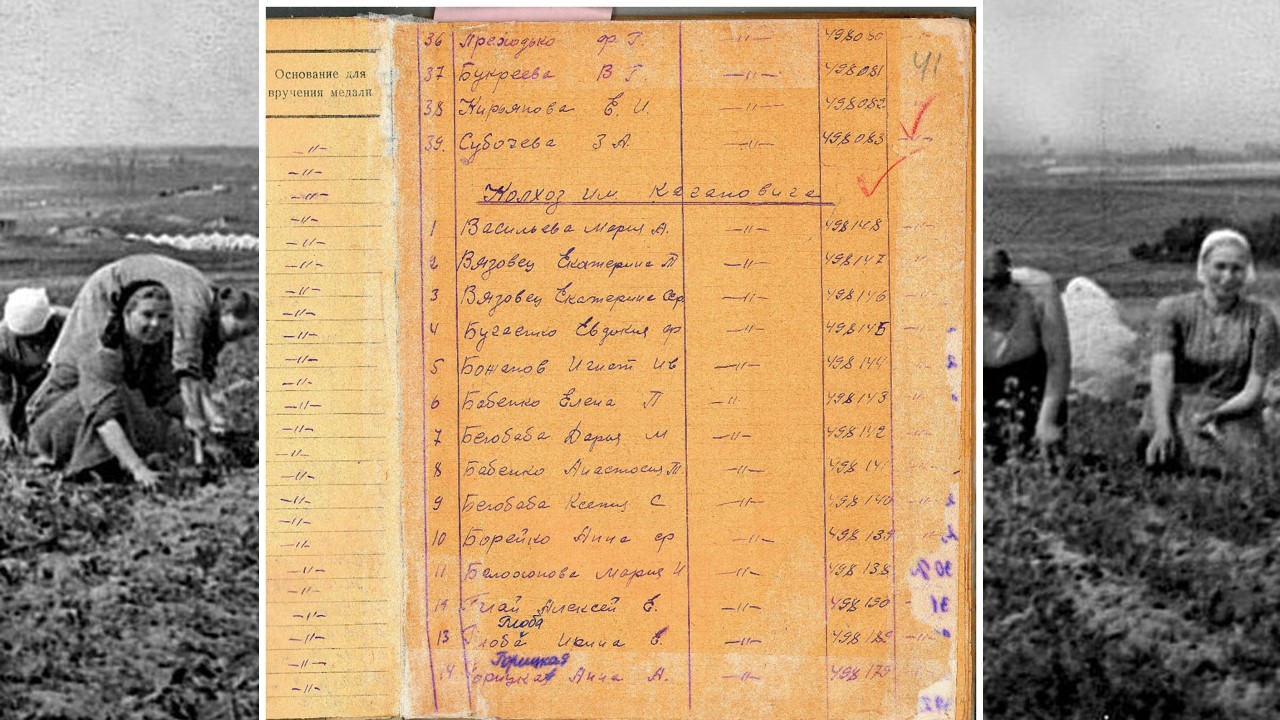 Основание для
вручения медали
36 Преходько Ф Г. —〃— 498080
37 Букреева В Г. —〃— 498081
41
38 Кирьянова Е. И. —〃— 498082
39. Суботева З А. —〃— 498083
Колхоз им Кагановича
1 Васильева Мария А. —〃— 498148
2 Вязовец Екатерина П —〃— 498147
3 Вязовец Екатерина Сер —〃— 498146
4 Бугаенко Евдокия Ф —〃— 498145
5 Божанов Игнат Ив —〃— 498144
6 Бабенко Елена П —〃— 498143
7 Белобаба Дарья М —〃— 498142
8 Бабенко Анастасия П —〃— 49814
9 Белобаба Ксения С —〃— 498140
10 Борейко Анна Ф —〃— 498139
11 Мария И —〃— 498138
Алексей Е. —〃— 498190
Глоба
13 Глоба Е. —〃—
Горицкая
14 Горицкая Анна А. —〃— 498179